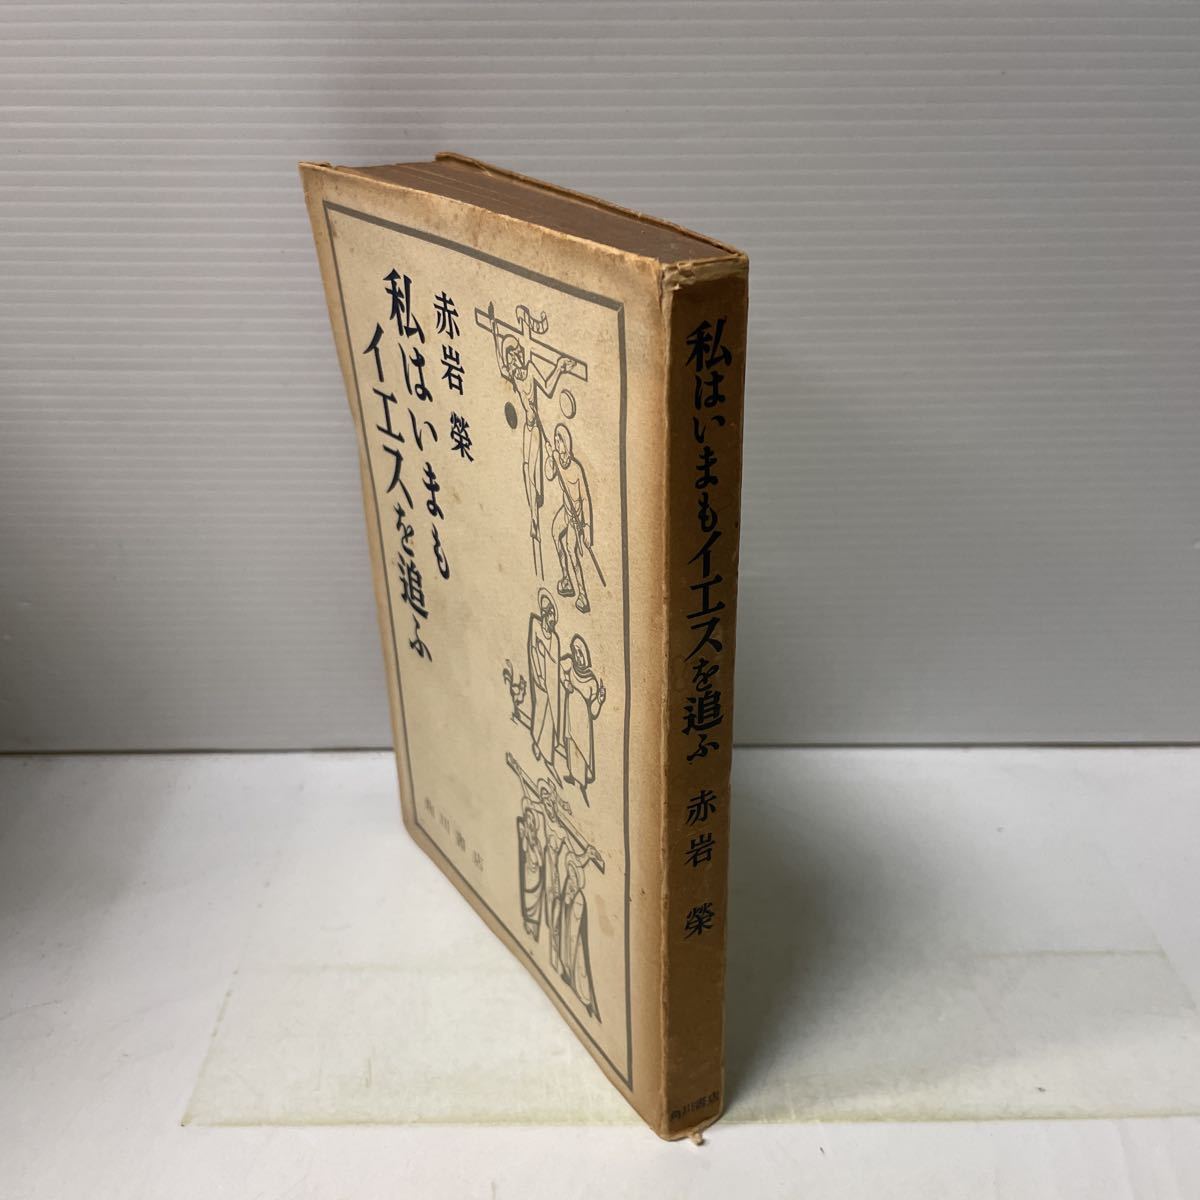 赤岩 榮
私はいまも
イエスを追ふ
角川書店
私はいまもイエスを追ふ 赤岩 榮
角川書店